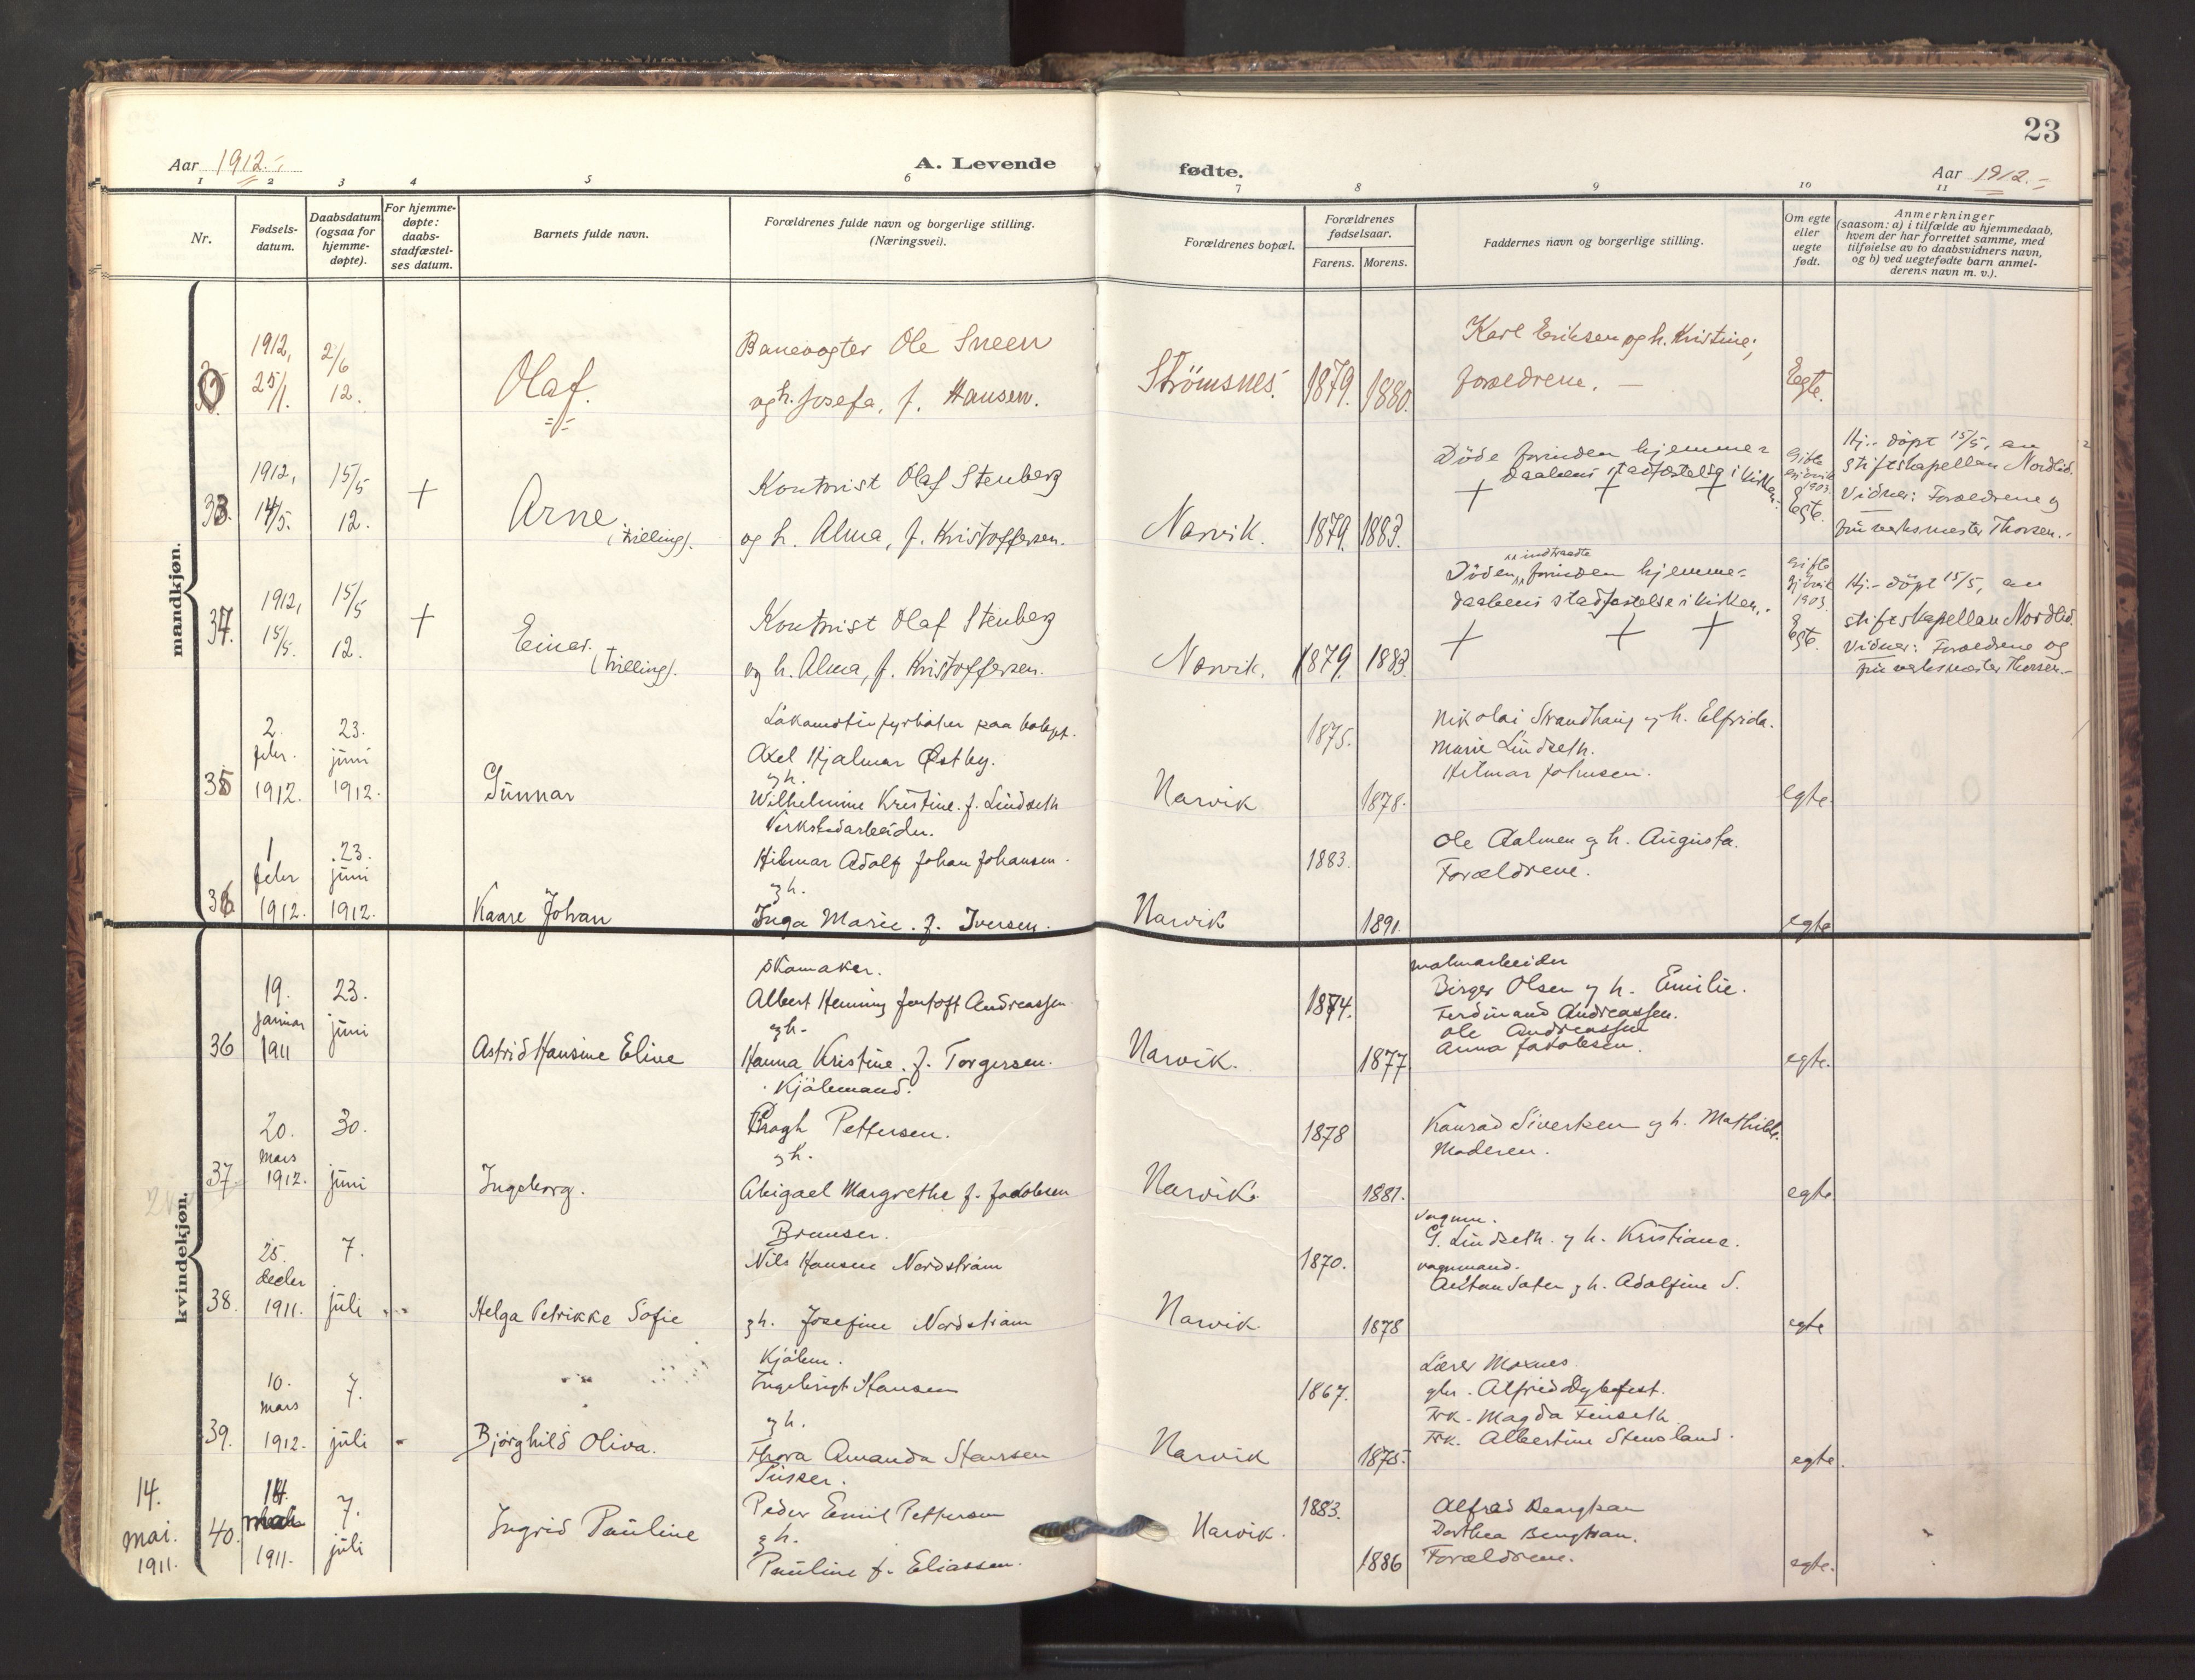 23
Aar 1912.
A. Levende fødte.
Aar 1912.
1 2 3 4 5 6 7 8 9 10 11
Nr.
Fødsels-
datum.
Daabsdatum
(ogsaa for
hjemme-
døpte).
For hjemme-
døpte:
daabs-
stadfæstel-
ses datum.
Barnets fulde navn.
Forældrenes fulde navn og borgerlige stilling.
(Næringsvei).
Forældrenes bopæl.
Forældrenes
fødselsaar.
Farens. Morens.
Faddernes navn og borgerlige stilling.
Om egte
eller
uegte
født.
Anmerkninger
(saasom: a) i tilfælde av hjemmedaab,
hvem der har forrettet samme, med
tilføielse av to daabsvidners navn,
og b) ved uegtefødte barn anmel-
derens navn m. v.).
mandkjøn.
1912,
25/1.
2/6
12.
Olaf.
Banevogter Ole Sneen
og h. Josefa, f. Hansen.
Strömsnes.
1879. 1880.
Karl Eriksen og h. Kristine;
forældrene. —
Egte.
33.
1912,
14/5.
15/5
12.
+
Arne
(trilling).
Kontorist Olaf Stenberg
og h. Alma, f. Kristoffersen.
Narvik.
1879. 1883.
Döde forinden hjemme=
daabens stadfæstelse i kirken.
+ + +
Gifte
Gjövik
1903.
Egte.
Hj.- döpt 15/5, av
stiftskapellan Nordlid.
Vidner: Forældrene og
fru verksmester Thorsen.-
34.
1912,
15/5.
15/5
12.
+
Einar.
(trilling).
Kontorist Olaf Stenberg
og h. Alma, f. Kristoffersen.
Narvik.
1879. 1883.
indtraadte
Döden forinden hjemme=
daabens stadfæstelse i kirken.
+ + +
Gifte
Gjövik
1903.
Egte.
Hj.- döpt 15/5, av
stiftskapellan Nordlid.
Vidner: Forældrene og
fru verksmester Thorsen.-
35
2.
febr.
1912.
23.
juni
1912.
Gunnar
Axel Hjalmar Østby.
og h.
Wilhelmine Kristine. f. Lindseth
Narvik
1875.
1878.
Nikolai Strandhaug og h. Elfrida.
Marie Lindseth.
Hilmar Johnsen.
egte.
36
1
febr
1912.
23.
juni
1912.
Kaare Johan
Verkstedarbeider.
Hilmar Adolf Johan Johansen.
og h.
Inga Marie. f. Iversen.
Narvik
1883.
1891.
Ole Aalmen og h. Augusta.
Forældrene.
egte
kvindekjøn.
36
19.
januar
1911
23.
juni
Astrid Hansine Eline
Skomaker.
Albert Henning Jentoft Andreassen
og h.
Hanna Kristine. f. Torgersen.
Narvik.
1874.
1877
malmarbeider
Birger Olsen og h. Emilie.
Ferdinand Andreassen.
Ole Andreassen
Anna Jakobsen.
egte.
37.
20.
mars
1912.
30.
juni
Ingeborg.
Kjölemand.
Pettersen.
og h.
Abigael Margrethe f. Jakobsen
Narvik.
1878
1881.
Konrad Sivertsen og h. Mathilde.
Moderen.
egte
38.
25.
decbr
1911.
7.
juli
Helga Petrikke Sofie
Bremser.
Nils Hansen Nordström
og h. Josefine Nordström
Narvik
1870.
1878
vognm.
G. Lindseth. og h. Kristiane.
vognmand.
Anton Sater og h. Adolfine S.
egte
39.
10.
mars
1912.
7.
juli
Bjørghild Oliva.
Kjölem.
Ingebrigt Hansen
og h.
Thora Amanda Hansen
Narvik
1867.
1875.
Lærer Moxnes.
Frk. Magda Finseth
Frk. Albertine Stensland.
egte.
14.
mai.
1911.
40.
14.
1911.
7.
juli
Ingrid Pauline
Pusser.
Peder Emil Pettersen
og h.
Pauline f. Eliassen.
Narvik.
1883.
1886
Alfred
Dorthea
Forældrene.
egte.